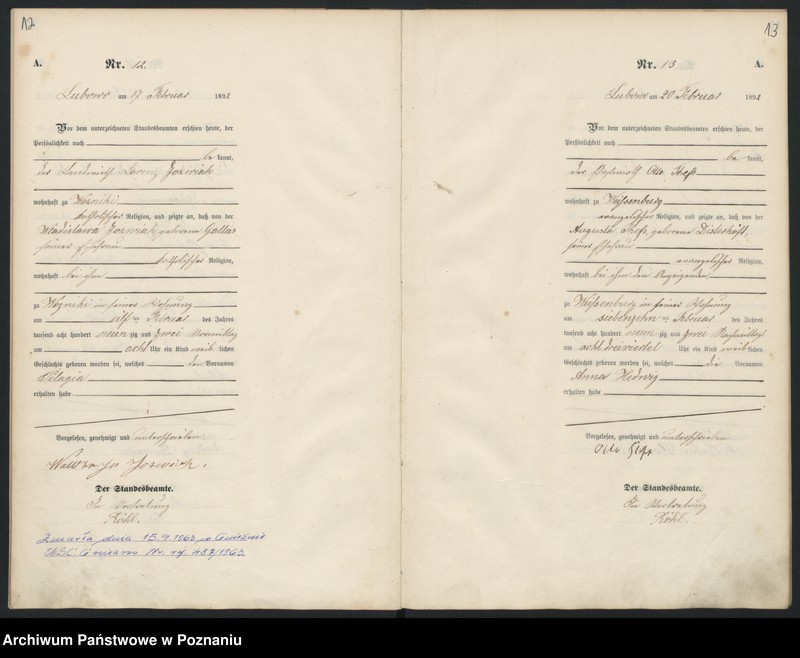 12
A.
Nr. 12.
Lubowo am 17 Februar 1892
Vor dem unterzeichneten Standesbeamten erschien heute, der
Persönlichkeit nach
be kannt,
der Landwirth Lorenz Jozwiak
wohnhaft zu Wozniki
katholischer Religion, und zeigte an, daß von der
Wladislawa Jozwiak geborene Gallas
seiner Ehefrau
katholischer Religion,
wohnhaft bei ihm
zu Wozniki in seiner Wohnung
am elften Februar des Jahres
tausend acht hundert neun zig und zwei Vormittag
um acht Uhr ein Kind weib lichen
Geschlechts geboren worden sei, welches den Vornamen
Pelagia
erhalten habe
Vorgelesen, genehmigt und unterschrieben.
Jozwiak.
Der Standesbeamte.
In Vertretung
Röhl.
Zmarła dnia 15.9.1963 w Gnieźnie
USC. Gniezno Nr. 487/1963.
13
Nr. 13
A.
Lubowo am 20 Februar 1892
Vor dem unterzeichneten Standesbeamten erschien heute, der
Persönlichkeit nach
be kannt,
der Otto
wohnhaft zu Weissenburg
evangelischer Religion, und zeigte an, daß von der
Augusta geborene
seiner Ehefrau
evangelischer Religion,
wohnhaft bei ihm dem Anzeigenden
zu Weissenburg in seiner Wohnung
am siebenzehnten Februar des Jahres
tausend acht hundert neun zig und zwei Nachmittags
um acht dreiviertel Uhr ein Kind weib lichen
Geschlechts geboren worden sei, welches die Vornamen
Anna Hedwig
erhalten habe
Vorgelesen, genehmigt und unterschrieben
Otto
Der Standesbeamte.
In Vertretung
Röhl.
Archiwum Państwowe w Poznaniu